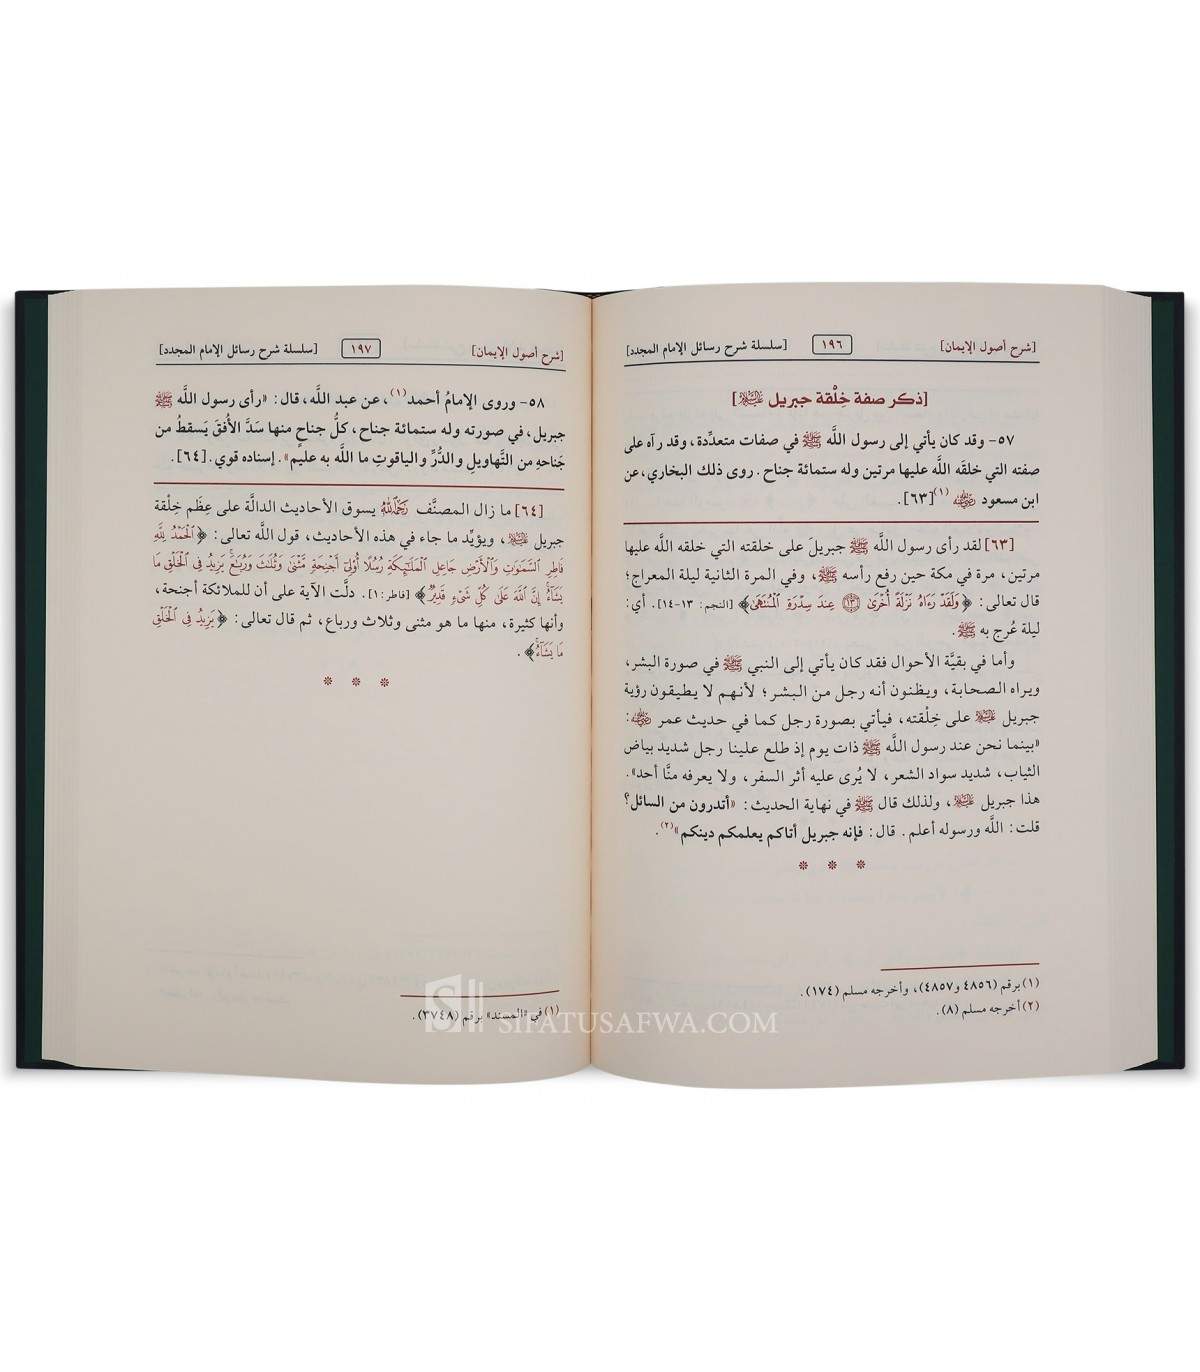 [شرح أصول الإيمان] ١٩٦ [سلسلة شرح رسائل الإمام المجدد]
[ذكر صفة خِلْقة جبريل ﵇]
٥٧- وقد كان يأتي إلى رسول اللَّه ﷺ في صفات متعدِّدة، وقد رآه على
صفته التي خلقَه اللَّه عليها مرتين وله ستمائة جناح. روى ذلك البخاري، عن
ابن مسعود ﵁(١)[٦٣].
[٦٣] لقد رأى رسول اللَّه ﷺ جبريلَ على خلقته التي خلقه اللَّه عليها
مرتين، مرة في مكة حين رفع رأسه ﷺ، وفي المرة الثانية ليلة المعراج؛
قال تعالى: ﴿وَلَقَدْ رَءَاهُ نَزْلَةً أُخْرَىٰ ۝١٣ عِندَ سِدْرَةِ ٱلْمُنتَهَىٰ﴾ [النجم: ١٣-١٤]. أي:
ليلة عُرج به ﷺ.
وأما في بقيَّة الأحوال فقد كان يأتي إلى النبي ﷺ في صورة البشر،
ويراه الصحابة، ويظنون أنه رجل من البشر؛ لأنهم لا يطيقون رؤية
جبريل ﵇ على خِلْقته، فيأتي بصورة رجل كما في حديث عمر ﵁:
«بينما نحن عند رسول اللَّه ﷺ ذات يوم إذ طلع علينا رجل شديد بياض
الثياب، شديد سواد الشعر، لا يُرى عليه أثر السفر، ولا يعرفه منَّا أحد».
هذا جبريل ﵇، ولذلك قال ﷺ في نهاية الحديث: «أتدرون من السائل؟
قلت: اللَّه ورسوله أعلم. قال: فإنه جبريل أتاكم يعلمكم دينكم»(٢).
(١) برقم (٤٨٥٦ و٤٨٥٧)، وأخرجه مسلم (١٧٤).
(٢) أخرجه مسلم (٨).
[شرح أصول الإيمان] ١٩٧ [سلسلة شرح رسائل الإمام المجدد]
٥٨- وروى الإمامُ أحمد(١)، عن عبد اللَّه، قال: «رأى رسول اللَّه ﷺ
جبريل، في صورته وله ستمائة جناح، كلُّ جناحٍ منها سَدَّ الأُفقَ يَسقطُ من
جَناحهِ من التَّهاويلِ والدُّرِّ والياقوتِ ما اللَّه به عليم». إسناده قوي.[٦٤].
[٦٤] ما زال المصنَّف ﵀ يسوق الأحاديث الدالَّة على عِظَم خِلْقة
جبريل ﵇، ويؤيِّد ما جاء في هذه الأحاديث، قول اللَّه تعالى: ﴿ٱلْحَمْدُ لِلَّهِ
فَاطِرِ ٱلسَّمَٰوَٰتِ وَٱلْأَرْضِ جَاعِلِ ٱلْمَلَٰٓئِكَةِ رُسُلًا أُو۟لِىٓ أَجْنِحَةٍ مَّثْنَىٰ وَثُلَٰثَ وَرُبَٰعَ ۚ يَزِيدُ فِى ٱلْخَلْقِ مَا
يَشَآءُ ۚ إِنَّ ٱللَّهَ عَلَىٰ كُلِّ شَىْءٍ قَدِيرٌ﴾ [فاطر: ١]. دلَّت الآية على أن للملائكة أجنحة،
وأنها كثيرة، منها ما هو مثنى وثلاث ورباع، ثم قال تعالى: ﴿يَزِيدُ فِى ٱلْخَلْقِ
مَا يَشَآءُ﴾.
(١) في «المسند» برقم (٣٧٤٨).
SIFATUSAFWA.COM